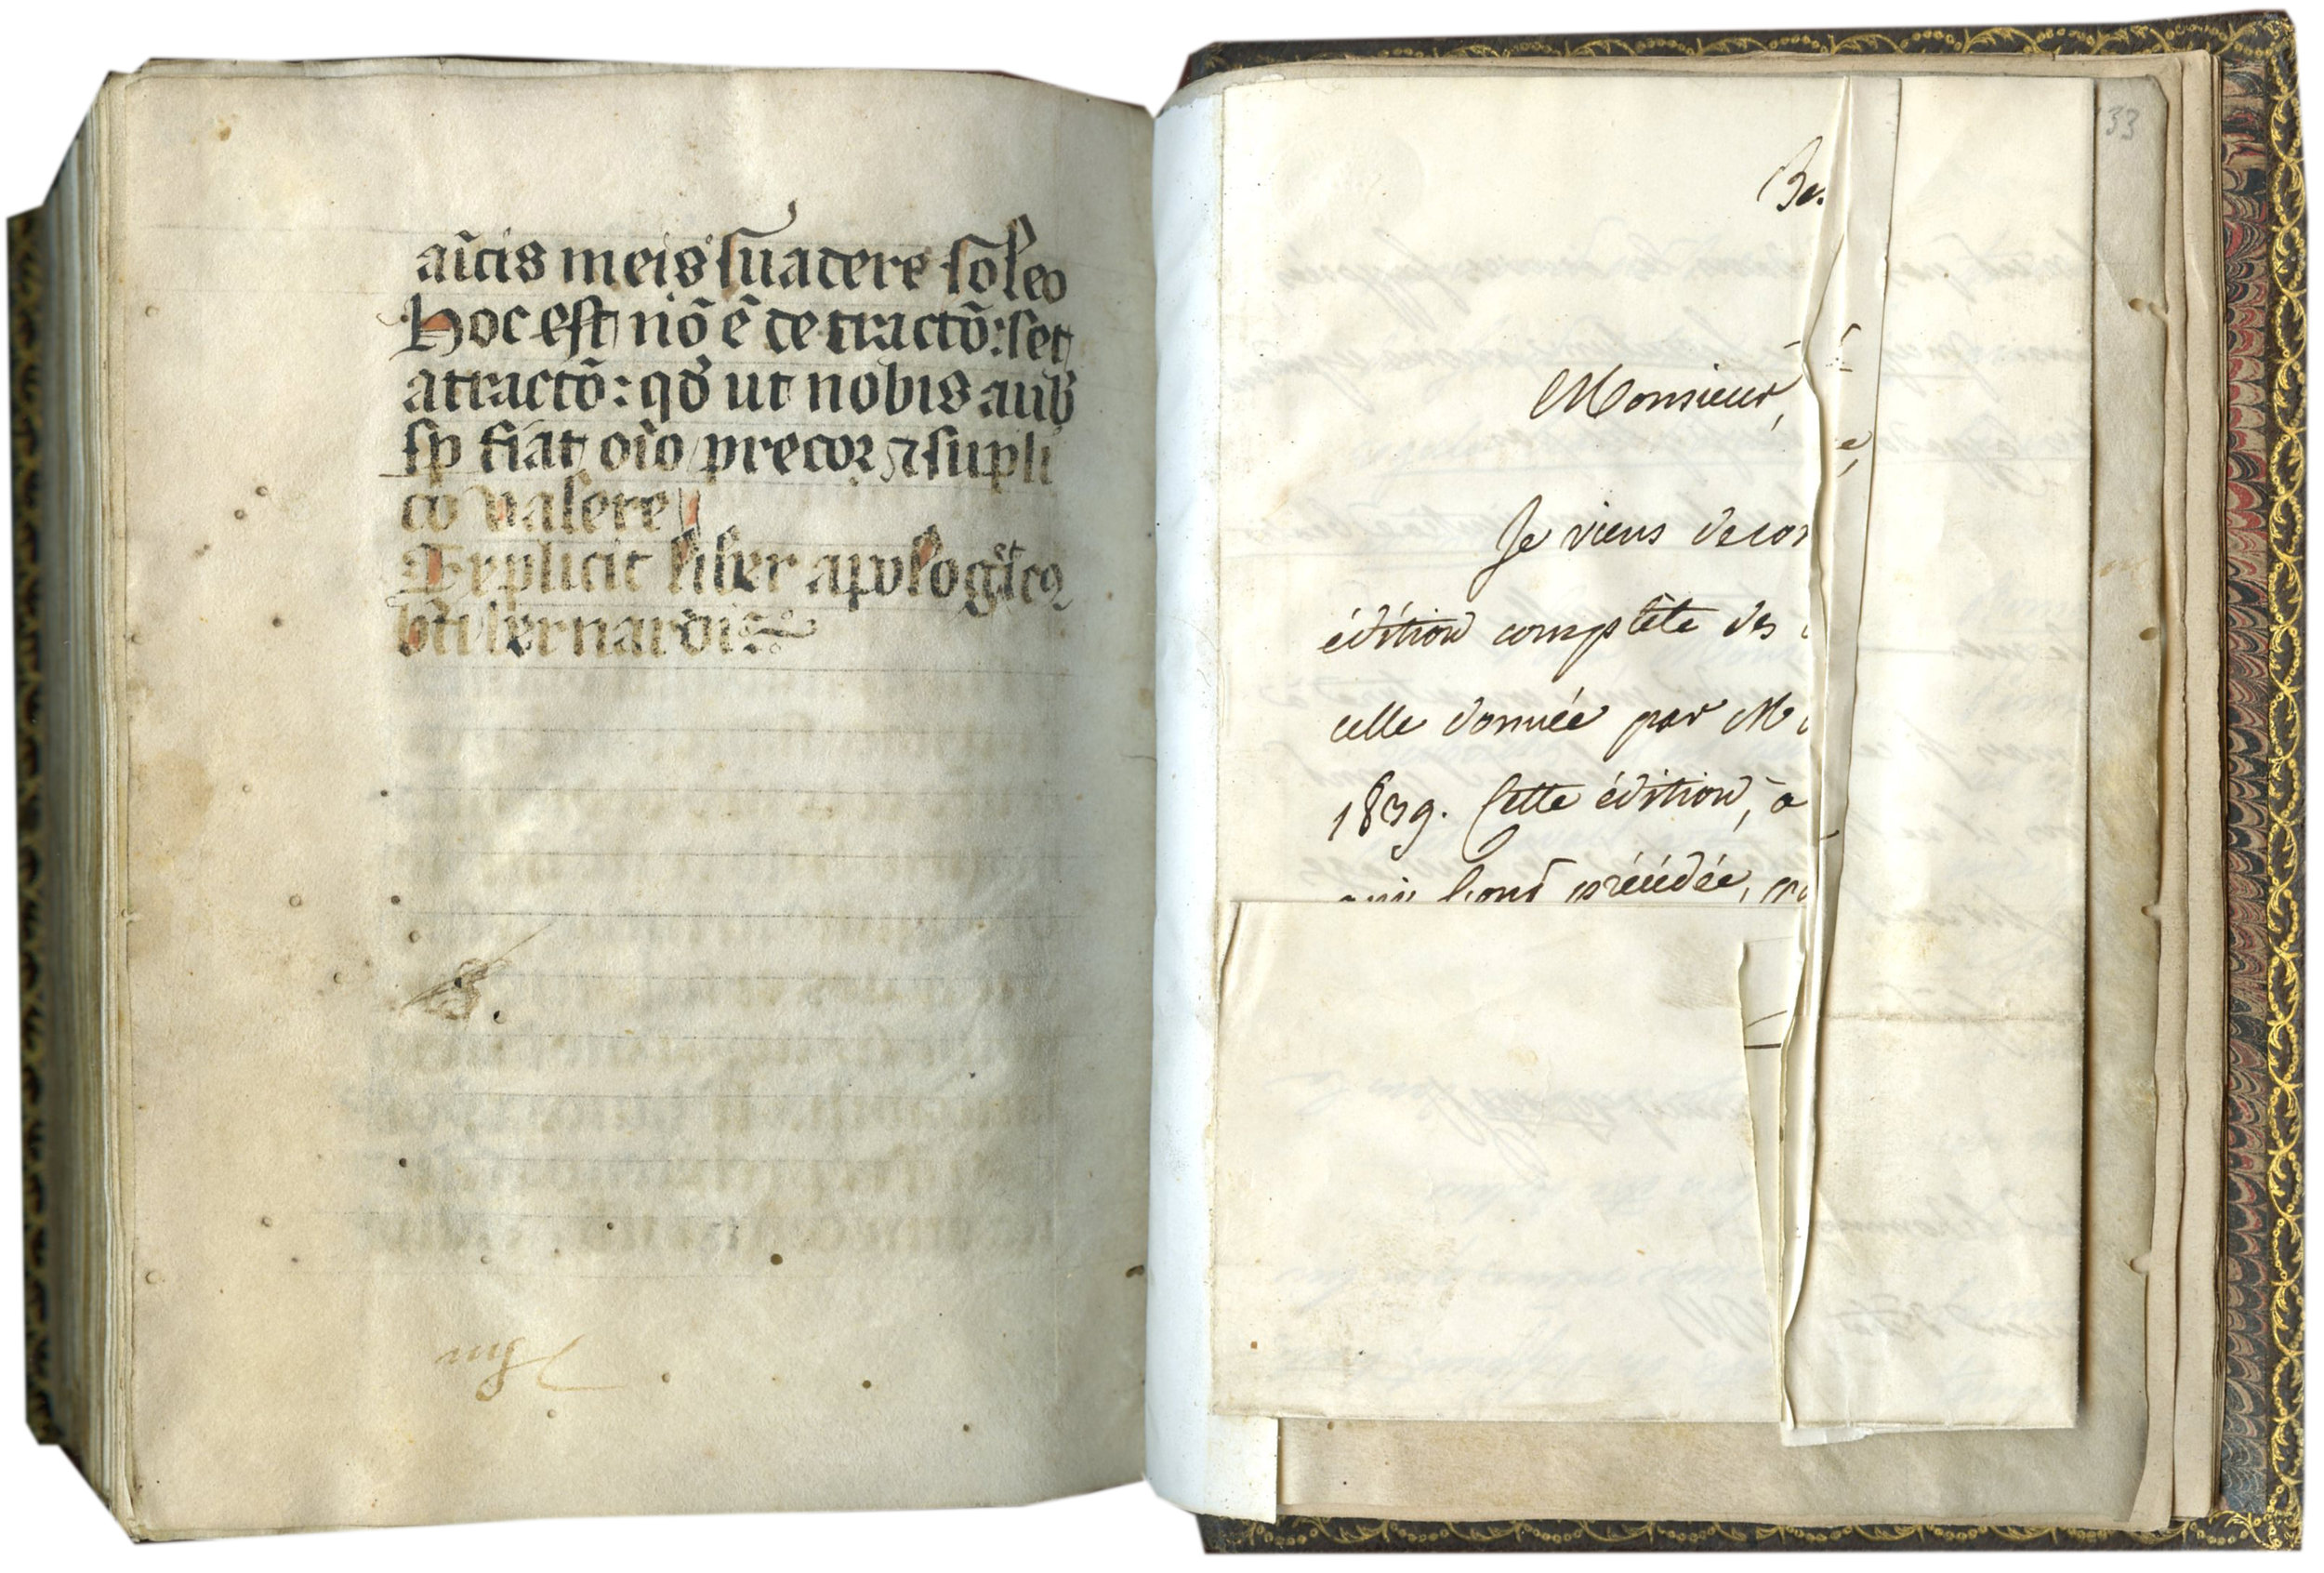 aı̃cis meis suadere soleo
Hoc est nõ ẽ detractõ: set
atractõ: qđ ut nobis a uƀ
sp fiat oı̃o precor ⁊ supli
co valere
Explicit liber apologetı̃cꝯ
bt̃i bernardi
33
Be.
Monsieur,
Je viens de con
édition complète des
celle donnée par M
1839. Cette édition, a
qui l'ont précédée, pa